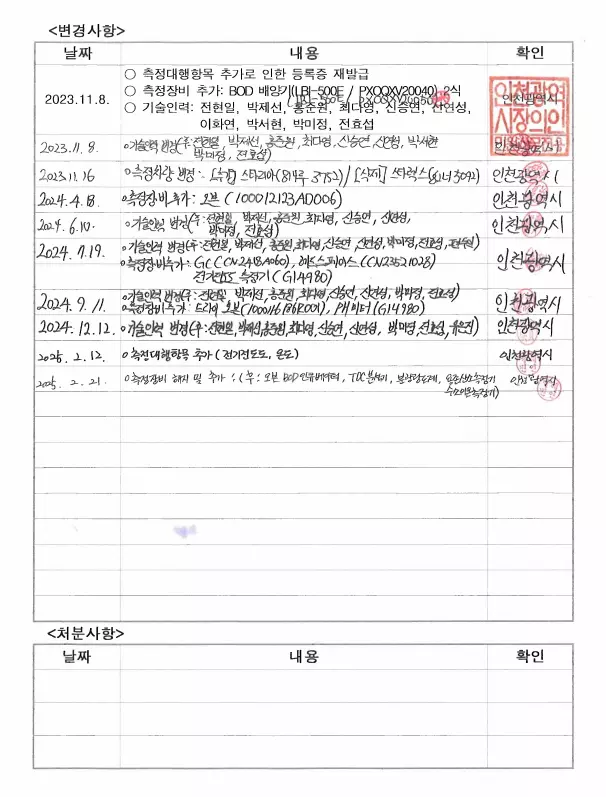 <변경사항>
날짜 내용 확인
2023.11.8. ○ 측정대행항목 추가로 인한 등록증 재발급
○ 측정장비 추가: BOD 배양기(LBI-500E / PXOQXV20040) 2식
○ 기술인력: 전현일, 박제선, 홍준원, 최다영, 신승연, 신연성,
이화연, 박서현, 박미정, 전효섭
인천광역시
인천광역시장의인
2023. 11. 8. ○기술인력 변경(후: 전현일, 박제선, 홍준원, 최다영, 신승연, 신연성, 박서현
박미정, 전효섭) 인천광역시
2023.11.16 ○측정차량 변경 - [추가] 스타리아(814우 3752) / [삭제] 스타렉스 인천광역시
2024.4.18. ○측정장비 추가: 오븐 (100012123AD006) 인천광역시
2024.6.10. ○기술인력 변경(후: 전현일, 박제선, 홍준원, 최다영, 신승연, 신연성,
박미정, 전효섭) 인천광역시
2024.7.19. ○기술인력 변경(후: 전현일, 박제선, 홍준원, 최다영, 신승연, 신연성, 박미정, 전효섭,
○측정장비추가: GC(CN2418A060), 헤드스페이스(CN23521028)
측정기(G14980) 인천광역시
2024. 9. 11. ○기술인력 변경(후: 전현일, 박제선, 홍준원, 최다영, 신승연, 신연성, 박미정, 전효섭)
○측정장비추가: 드라이 오븐(1000116186R001), PH미터(G14980) 인천광역시
2024. 12. 12. ○기술인력 변경(후: 전현일, 박제선, 홍준원, 최다영, 신승연, 신연성, 박미정, 전효섭, 인천광역시
2025. 2. 12. ○측정대행항목 추가 (전기전도도, 온도) 인천광역시
2025. 2. 21. ○측정장비 해지 및 추가 : (후: 오븐, BOD인큐베이터, TOC분석기, 인천광역시
수소이온측정기)
<처분사항>
날짜 내용 확인